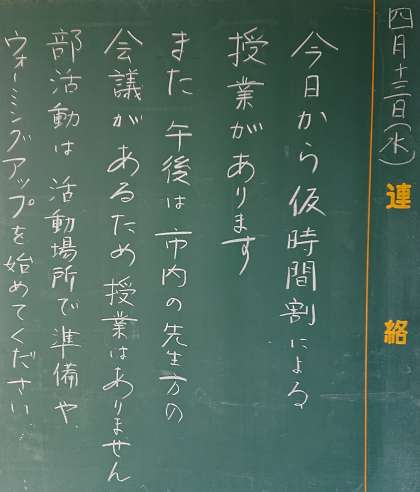 四月十三日(水)
連絡
今日から仮時間割による
授業があります
また 午後は 市内の先生方の
会議があるため 授業はありません
部活動は 活動場所で準備や
ウォーミングアップを始めてください